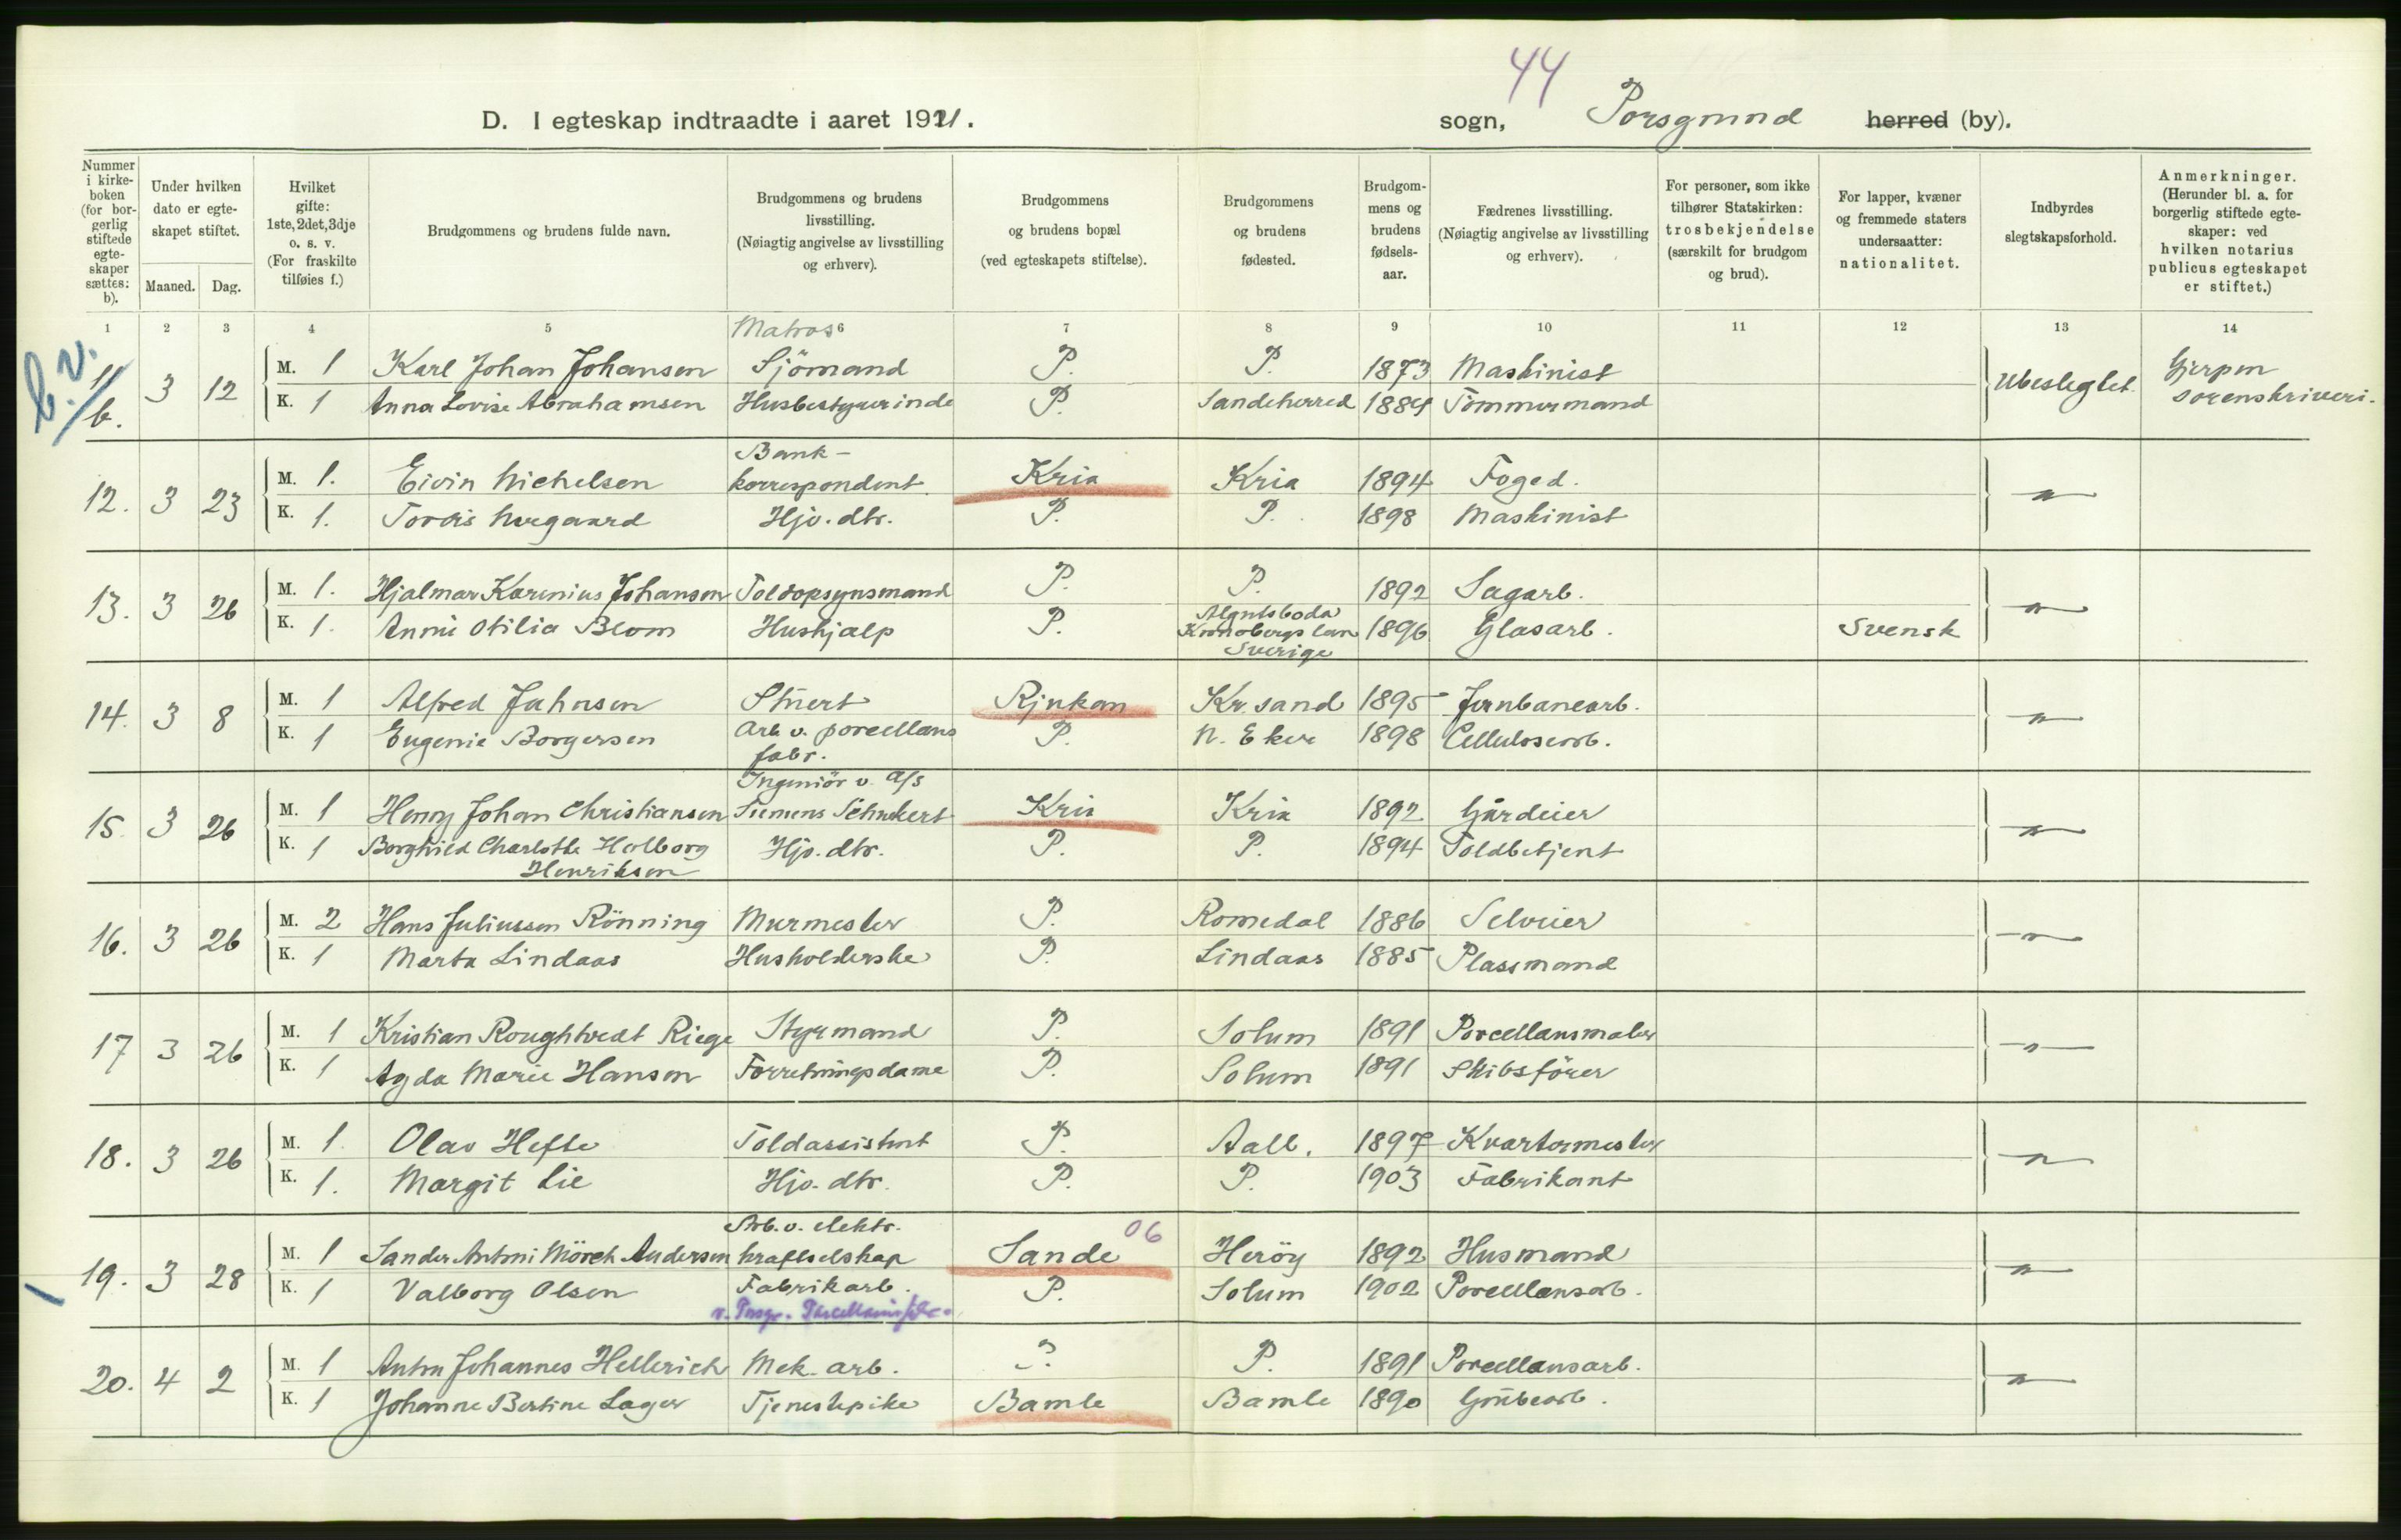 44
D. I egteskap indtraadte i aaret 1921.
sogn, Porsgrund herred (by).
Nummer i kirke-boken (for bor-gerlig stiftede egte-skaper sættes: b).
Under hvilken dato er egte-skapet stiftet.
Maaned. Dag.
Hvilket gifte: 1ste, 2det, 3dje o. s. v. (For fraskilte tilføies f.)
Brudgommens og brudens fulde navn.
Brudgommens og brudens livsstilling. (Nøiagtig angivelse av livsstilling og erhverv).
Brudgommens og brudens bopæl (ved egteskapets stiftelse).
Brudgommens og brudens fødested.
Brudgom-mens og brudens fødsels-aar.
Fædrenes livsstilling. (Nøiagtig angivelse av livsstilling og erhverv).
For personer, som ikke tilhører Statskirken: trosbekjendelse (særskilt for brudgom og brud).
For lapper, kvæner og fremmede staters undersaatter: nationalitet.
Indbyrdes slegtskapsforhold.
Anmerkninger. (Herunder bl. a. for borgerlig stiftede egte-skaper: ved hvilken notarius publicus egteskapet er stiftet.)
1 2 3 4 5 6 7 8 9 10 11 12 13 14
b.v.
Matros
11 b. 3 12 M. 1 Karl Johan Johansen Sjömand P. P. 1873 Maskinist Ubeslegtet Gjerpen sorenskriveri.
K. 1 Anna Lovise Abrahamsen Husbestyrerinde P. Sandeherred 1884 Tömmermand
Bank-
12. 3 23 M. 1. Eivin Michelsen korrespondent Kria Kria 1894 Foged. "
K. 1. Tordis Norgaard Hjv. dtr. P. P. 1898 Maskinist
13. 3 26 M. 1. Hjalmar Karenius Johansen Toldopsynsmand P. P. 1892 Sagarb. "
K. 1. Anni Otilia Blom Hushjælp P. Algutsboda Kronobergs län Sverige 1896 Glasarb. Svensk
14. 3 8 M. 1 Alfred Jahnsen Stuert Rjukan Kr.sand 1895 Jernbanearb. "
K. 1 Eugenie Borgersen Arb. v. porcellans fabr. P. N. Eker 1898 Cellulosearb.
Ingeniör v. A/S
15. 3 26 M. 1 Henry Johan Christiansen Siemens Schukert Kria Kria 1892 Gårdeier "
K. 1 Borghild Charlotte Holborg Henriksen Hjv. dtr. P. P. 1894 Toldbetjent
16. 3 26 M. 2 Hans Juliussen Rönning Murmester P. Romedal 1886 Selveier "
K. 1 Marta Lindaas Husholderske P. Lindaas 1885 Plassmand
17 3 26 M. 1 Kristian Roughtvedt Riege Styrmand P. Solum 1891 Porcellansmaler "
K. 1 Agda Marie Hansen Forretningsdame P. Solum 1891 Skibsförer
18. 3 26 M. 1 Olav Hefte Toldassistent P. Aall. 1897 Kvartermester "
K. 1. Margit Lie Hjv. dtr. P. P. 1903 Fabrikant
Arb. v. elektr. 06
19. 3 28 M. 1 Sander Antoni Mörch Andersen kraftselskap Sande Heröy 1892 Husmand "
K. 1 Valborg Olsen Fabrikarb. P. Solum 1902 Porcellansarb.
v. Porsgr. Porcellainsfabr.
20. 4 2 M. 1 Anton Johannes Hellerich Mek. arb. P. P. 1891 Porcellansarb. "
K. 1 Johanne Bertine Lager Tjenestepike Bamle Bamle 1890 Grubearb.